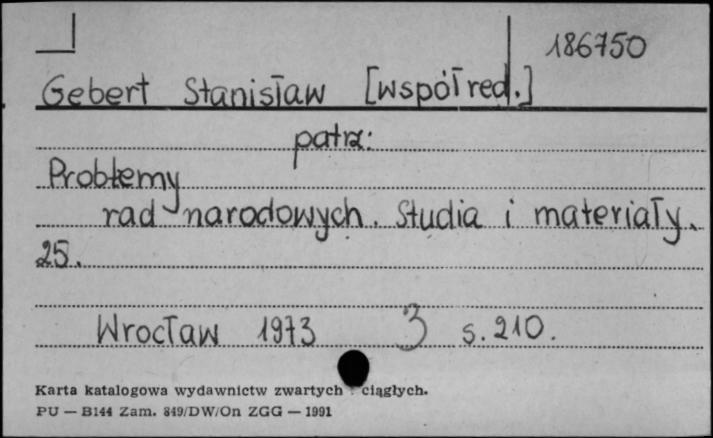 186750
Gebert Stanisław [współred.]
patrz:
Problemy
rad narodowych. Studia i materiały.
25.
Wrocław 1973 3 s. 210.
Karta katalogowa wydawnictw zwartych i ciągłych.
PU — B144 Zam. 849/DW/On ZGG — 1991